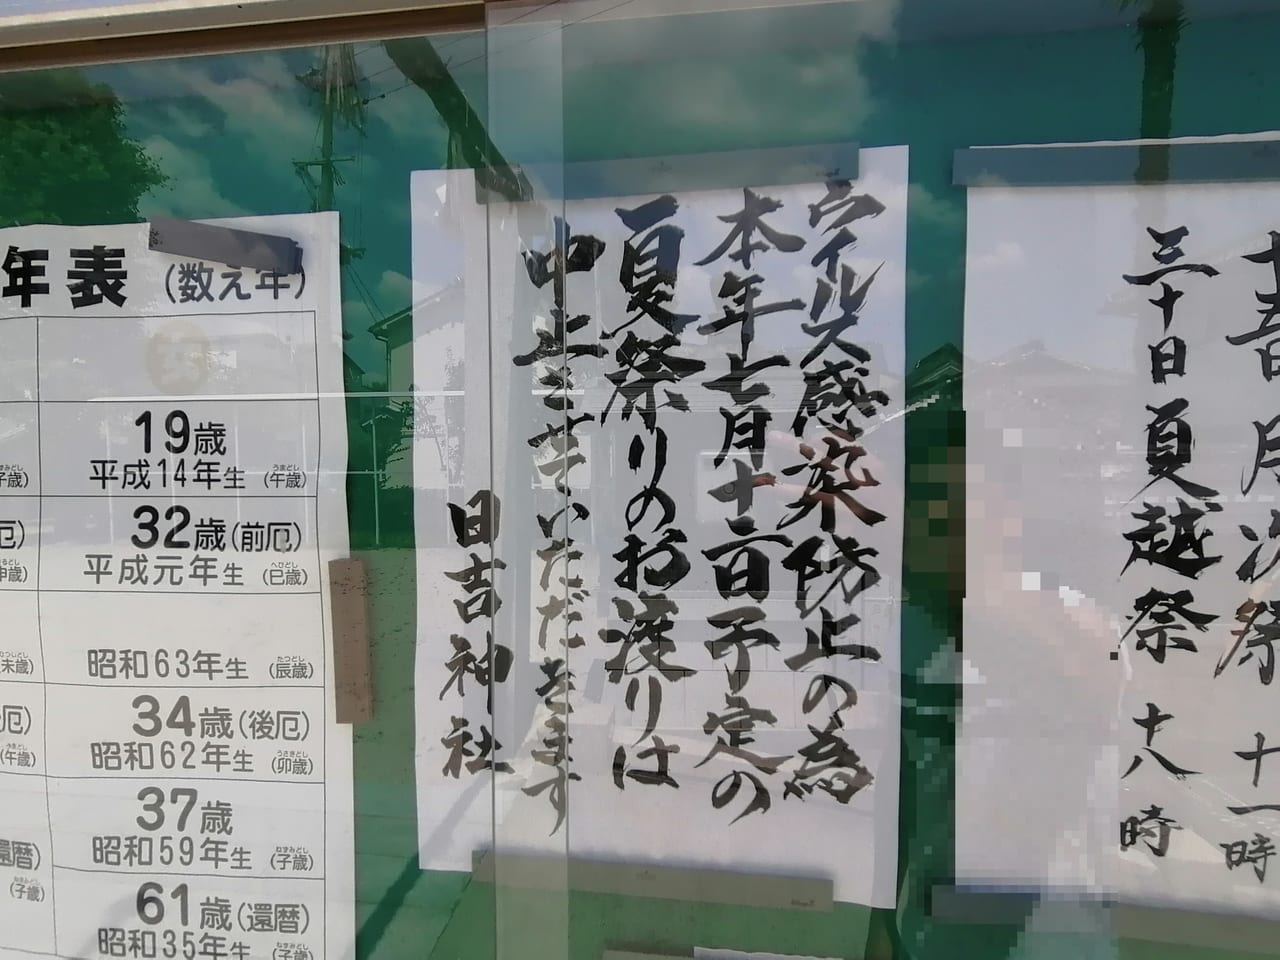 十五日月次祭 十一時
三十日夏越祭 十八時
ウイルス感染防止の為
本年七月十六日予定の
夏祭りのお渡りは
中止させていただきます
日吉神社
年表(数え年)
女
19歳
平成14年生(午歳)
32歳(前厄)
平成元年生(巳歳)
昭和63年生(辰歳)
34歳(後厄)
昭和62年生(卯歳)
37歳
昭和59年生(子歳)
61歳(還暦)
昭和35年生(子歳)